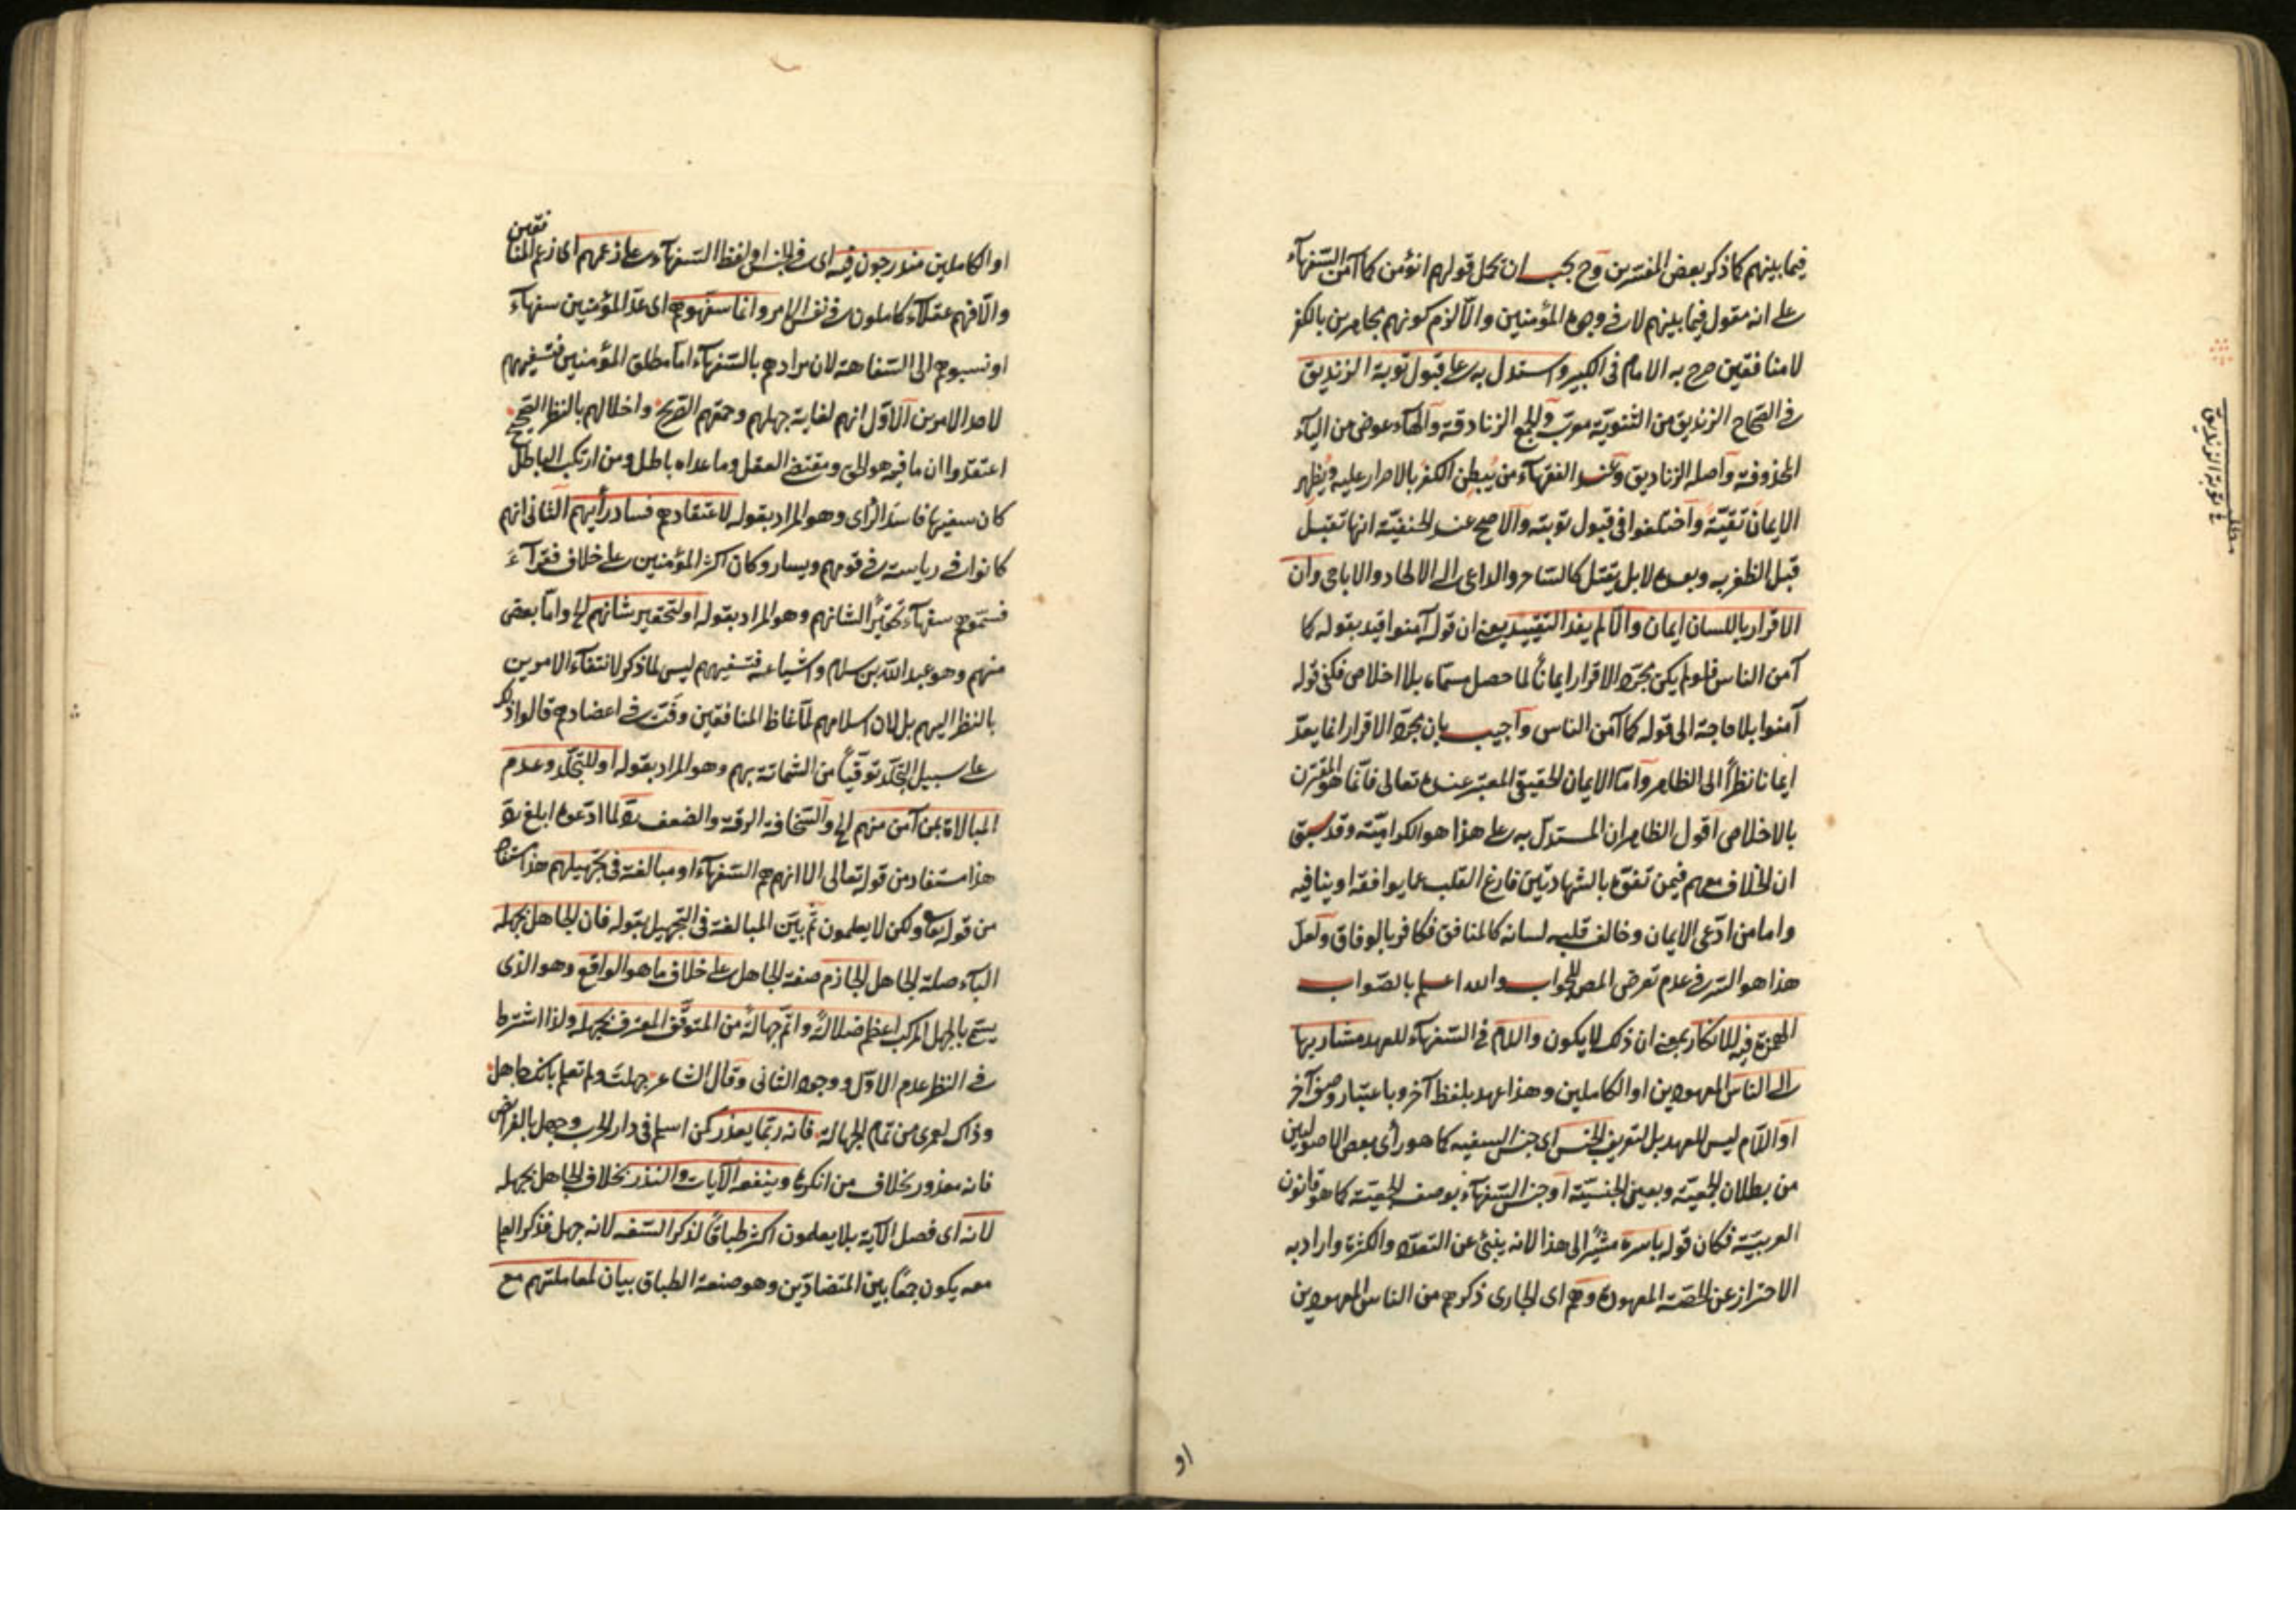 فيما بينهم كما ذكر بعض المفسرين وح يجب ان يحمل قولهم انؤمن كما آمن السفهآء
على انه مقول فيما بينهم لا في وجوه المؤمنين والا لزم كونهم مجاهرين بالكفر
لا منافقين صرح به الامام في الكبير واستدل به على قبول توبة الزنديق
في الصحاح الزنديق من الثنوية معرب والجمع الزنادقة والهآء عوض من اليآء
المحذوفة وآصله الزناديق وعند الفقهآء من يُبطن الكفر بالاصرار عليه ويُظهر
الايمان تقيّة واختلفوا في قبول توبته والاصح عند الحنفيّة انها تقبل
قبل الظفر به وبعده لا بل يقتل كالساحر والداعى الى الالحاد والاباحى وان
الاقرار باللسان ايمان والا لم يفد التقييد يعنى ان قوله آمنوا قيد بقوله كما
آمن الناس فلو لم يكن مجرّد الاقرار ايماناً لما حصل مسمّاه بلا اخلاص فكفى قوله
آمنوا بلا حاجة الى قوله كما آمن الناس وآجيب بان مجرّد الاقرار انما يعدّ
ايمانا نظراً الى الظاهر وامّا الايمان الحقيقى المعتبر عنده تعالى فانّما هو المقترن
بالاخلاص اقول الظاهر ان المستدلّ به على هذا هو الكراميّة وقد سبق
ان الخلاف معهم فيمن تفوّه بالشهادتين فارغ القلب عما يوافقه او ينافيه
واما من ادّعى الايمان وخالف قلبه لسانه كالمنافق فكافر بالوفاق ولعلّ
هذا هو السّر في عدم تعرض المص للجواب والله اعلم بالصّواب
الهمزة فيه للانكار يعنى ان ذلك لا يكون واللام في السّفهآء للعهد مشار بها
الى الناس المعهودين او الكاملين وهذا عهد بلفظ آخر وباعتبار وصف آخر
او اللّام ليس للعهد بل لتعريف الجنس اى جنس السفيه كما هو رأى بعض الاصوليين
من بطلان الجمعيّة وبعينى الجنسيّة آو جنس السّفهآء بوصف الجمعيّة كما هو قانون
العربيّة فكان قوله باسره مشيراً الى هذا لانه ينبئ عن التعدّد والكثرة واراد به
الاحتراز عن الحصّة المعهودة وهم اى الجارى ذكرهم من الناس المعهودين
او
مطلب
في توبة الزنديق
او الكاملين مندرجون فيه اى في الجنس او لفظ السّفهآء على زعمهم اى زعم المنافقين
والّا فهم عقلآء كاملون في نفس الامر وانما سفّهوهم اى عدّ المؤمنين سفهآء
او نسبوهم الى السّفاهة لان مرادهم بالسّفهآء اما مطلق المؤمنين فتسفيههم
لاحد الامرين الآوّل انهم لغاية جهلهم وحمقهم الصّريح واخلالهم بالنظر الصّحيح
اعتقدوا ان ما فيه هو الحق ومقتضى العقل وما عداه باطل ومن ارتكب الباطل
كان سفيها فاسد الرّاى وهو المراد بقوله لاعتقادهم فساد رأيهم الثانى انهم
كانوا في رياسة في قومهم ويسار وكان اكثر المؤمنين على خلاف فقرآءَ
فسمّوهم سفهآء تحقيراً لشانهم وهو المراد بقوله او لتحقير شانهم الخ وامّا بعض
منهم وهو عبد الله بن سلام واشياعه فتسفيههم ليس لما ذكر لانتفآء الامرين
بالنظر اليهم بل لان اسلامهم لمّا غاظ المنافقين وفتّ في اعضادهم قالوا ذلك
على سبيل التجلّد توقّياً من الشماتة بهم وهو المراد بقوله او للتّجلّد وعدم
المبالاة بمن آمن منهم الخ والسّخافة الرقة والضعف ردّ لما ادّعوه ابلغ ردّ
هذا مستفاد من قوله تعالى الا انهم هم السّفهآء او مبالغة في تجهيلهم هذا مستفاد
من قوله تعا ولكن لا يعلمون ثمّ بيّن المبالغة في التجهيل بقوله فان الجاهل بجهله
البآء صلة الجاهل الجازم صفة الجاهل على خلاف ما هو الواقع وهو الذى
يسمّى بالجهل المركب اعظم ضلالةً واتمّ جهالةً من المتوقّف المعترف بجهله ولذا اشترط
في النظر عدم الاوّل ووجود الثانى وقال الشاعر جهلتَ ولم تعلم بانك جاهل
وذاك لعمرى من تمام الجهالة فانه ربّما يعذر كمن اسلم في دار الحرب وجهل بالفرائض
فانه معذور بخلاف من انكرها وينفعه الآيات والنذر بخلاف الجاهل بجهله
لانه اى فصل الآية بلا يعلمون اكثر طباقاً لذكر السّفه لانه جهل فذكر العلم
معه يكون جمعاً بين المتضادّين وهو صنعة الطباق بيان لمعاملتهم مع